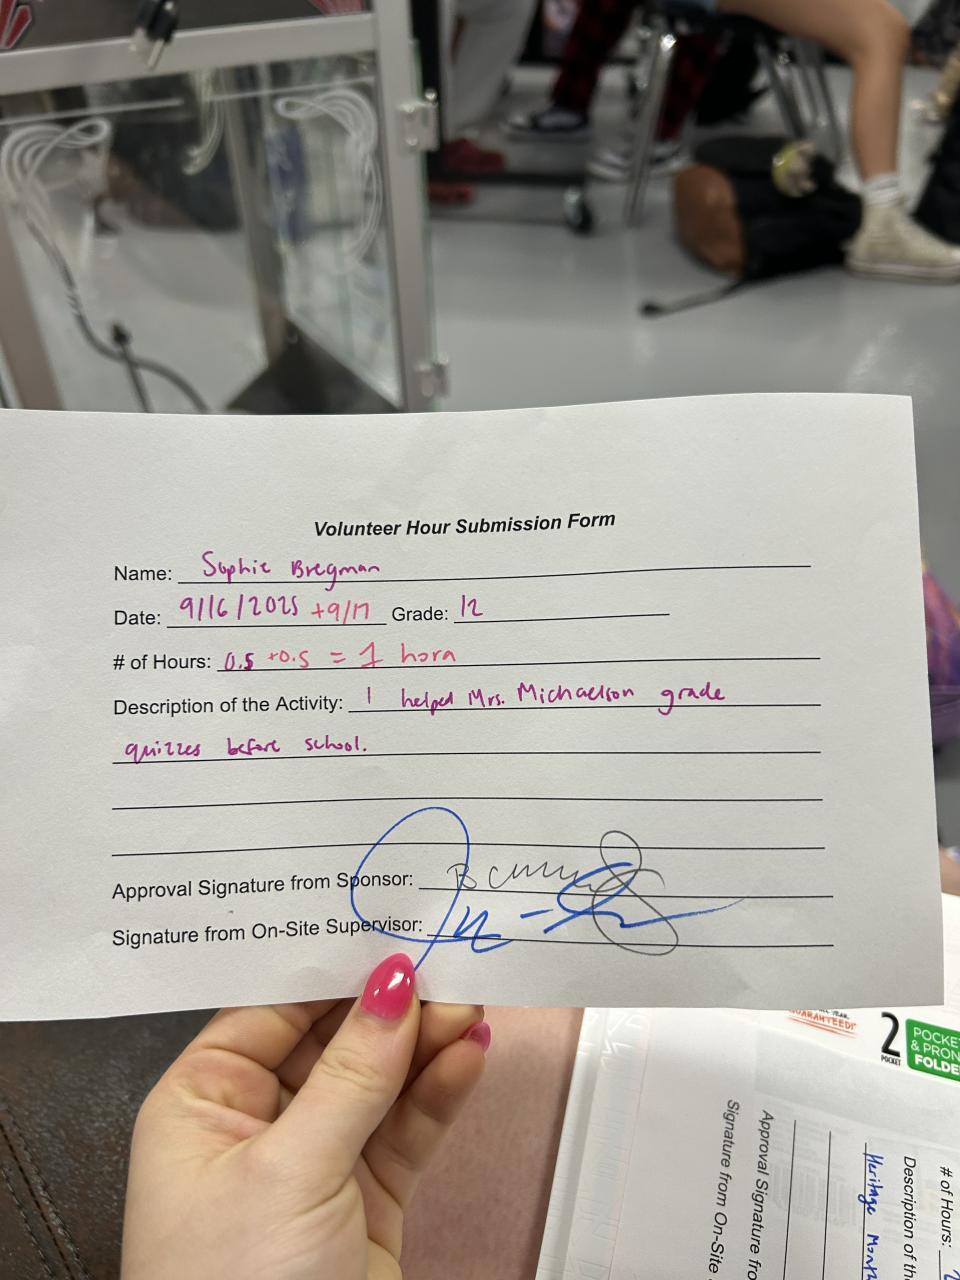 Volunteer Hour Submission Form
Name: Sophie Bregman
Date: 9/16/2025 +9/17 Grade: 12
# of Hours: 0.5 +0.5 = 1 hora
Description of the Activity: I helped Mrs. Michaelson grade
quizzes before school.
Approval Signature from Sponsor:
Signature from On-Site Supervisor:
GUARANTEED!
2
POCKET
POCKE
& PRON
FOLDE
# of Hours:
Description of th
Heritage Mont
Approval Signature fro
Signature from On-Site